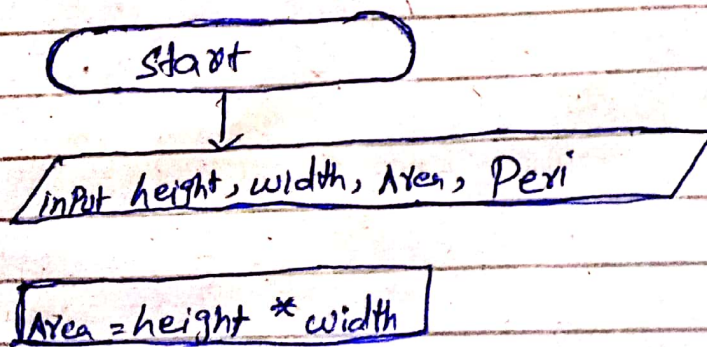 start
input height, width, Area, Peri
Area = height * width